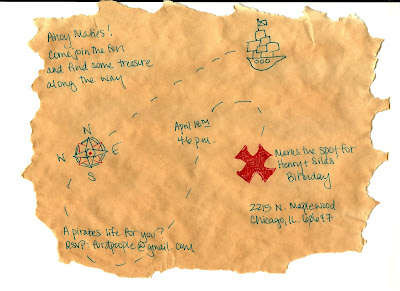 Ahoy Maties!
Come join the fun
and find some treasure
along the way
N
W
E
S
April 18th
4-6 p.m.
Marks the spot for
Henry + Silas
Birthday
2215 N. Maplewood
Chicago, IL. 60647
A pirates life for you?
RSVP: fordpeople@gmail.com